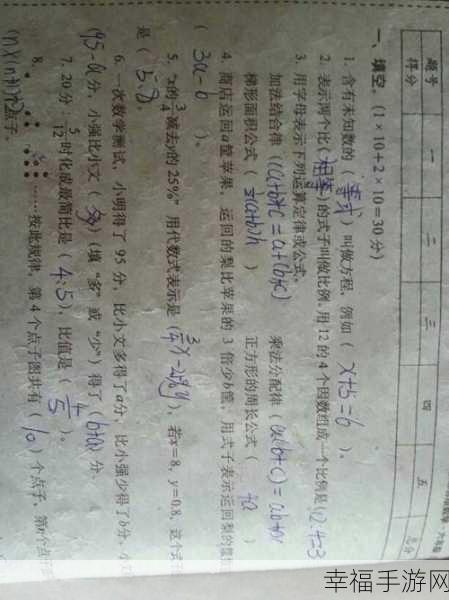 题号 一 二 三 四 五 总分
得分
一、填空。(1×10+2×10=30分)
1. 含有未知数的(等式)叫做方程,例如(x+5=6)。
2. 表示两个比(相等)的式子叫做比例,用12的4个因数组成一个比例是
3. 用字母表示下列运算定律或公式。
加法结合律((a+b)+c=a+(b+c)) 乘法分配律(a(b+c)=ab+ac
梯形面积公式( ) 正方形的周长公式( )
4. 商店运回a筐苹果,运回的梨比苹果的3倍少b筐,用式子表示运回梨的筐
(3a-b)。
5. "x的3/4减去y的25%"用代数式表示是( ),若x=8,y=0.8,这个式
是(5.8)
6. 一次数学测试,小明得了95分,比小文多得了a分,比小强少得了b分,小文
(95-a)分,小强比小文(多)(填"多"或"少")得了(b+a)分。
7. 20分:5/12时化成最简比是(4:5),比值是(4/5)。
8. ……按此规律,第4个点子图共有(10)个点子,第n个点子
个点子
幸福手游网